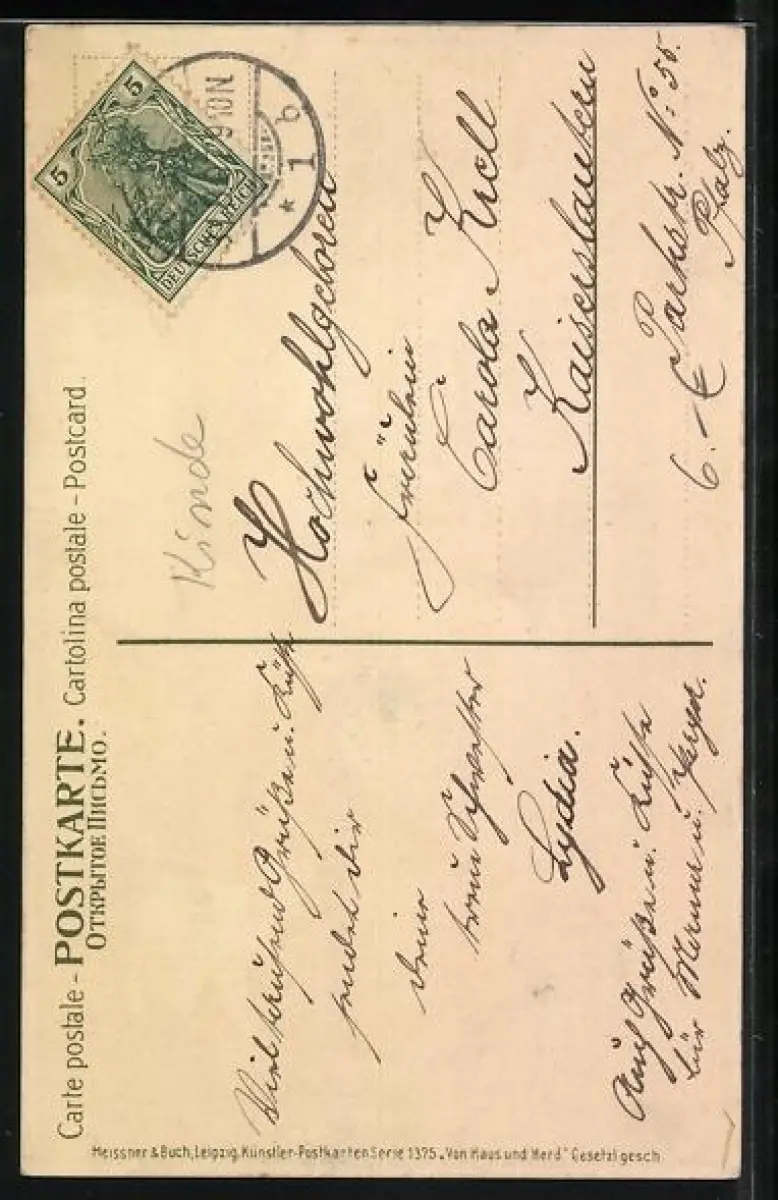 Carte postale - POSTKARTE. Cartolina postale - Postcard.
ОТКРЫТОЕ ПИСЬМО.
5
5
DEUTSCHES REICH
9 10 N
* 1 b
Kinde
Viel tausend Grüße u. Küsse
sendet dir
deine
treue Schwester
Lydia.
Auch Grüße u. Küsse
für Mama u.
Hochwohlgeboren
Fräulein
Carola Kröll
Kaiserslautern
6.-E Parkstr. No: 55.
Pfalz.
Meissner & Buch, Leipzig. Künstler-Postkarten Serie 1375 „Von Haus und Herd" Gesetzl gesch